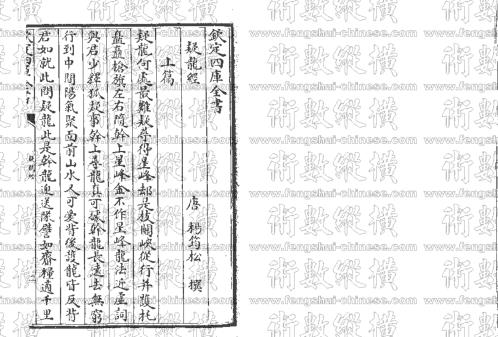 欽定四庫全書
疑龍經
唐 楊筠松 撰
上篇
疑龍何處最難疑尋得星峰却是枝關峽從行并護托
矗矗槍旗左右隨幹上星峰金不作星峰龍法近虛詞
與君少釋狐疑事幹上尋龍真可據幹龍長遠去無窮
行到中間陽氣聚面前山水人可愛背後護龍皆反背
君如就此問疑龍此是幹龍迎送隊譬如齎糧適千里
欽定四庫全書
疑龍經
術數縱橫
www.fengshui-chinese.com